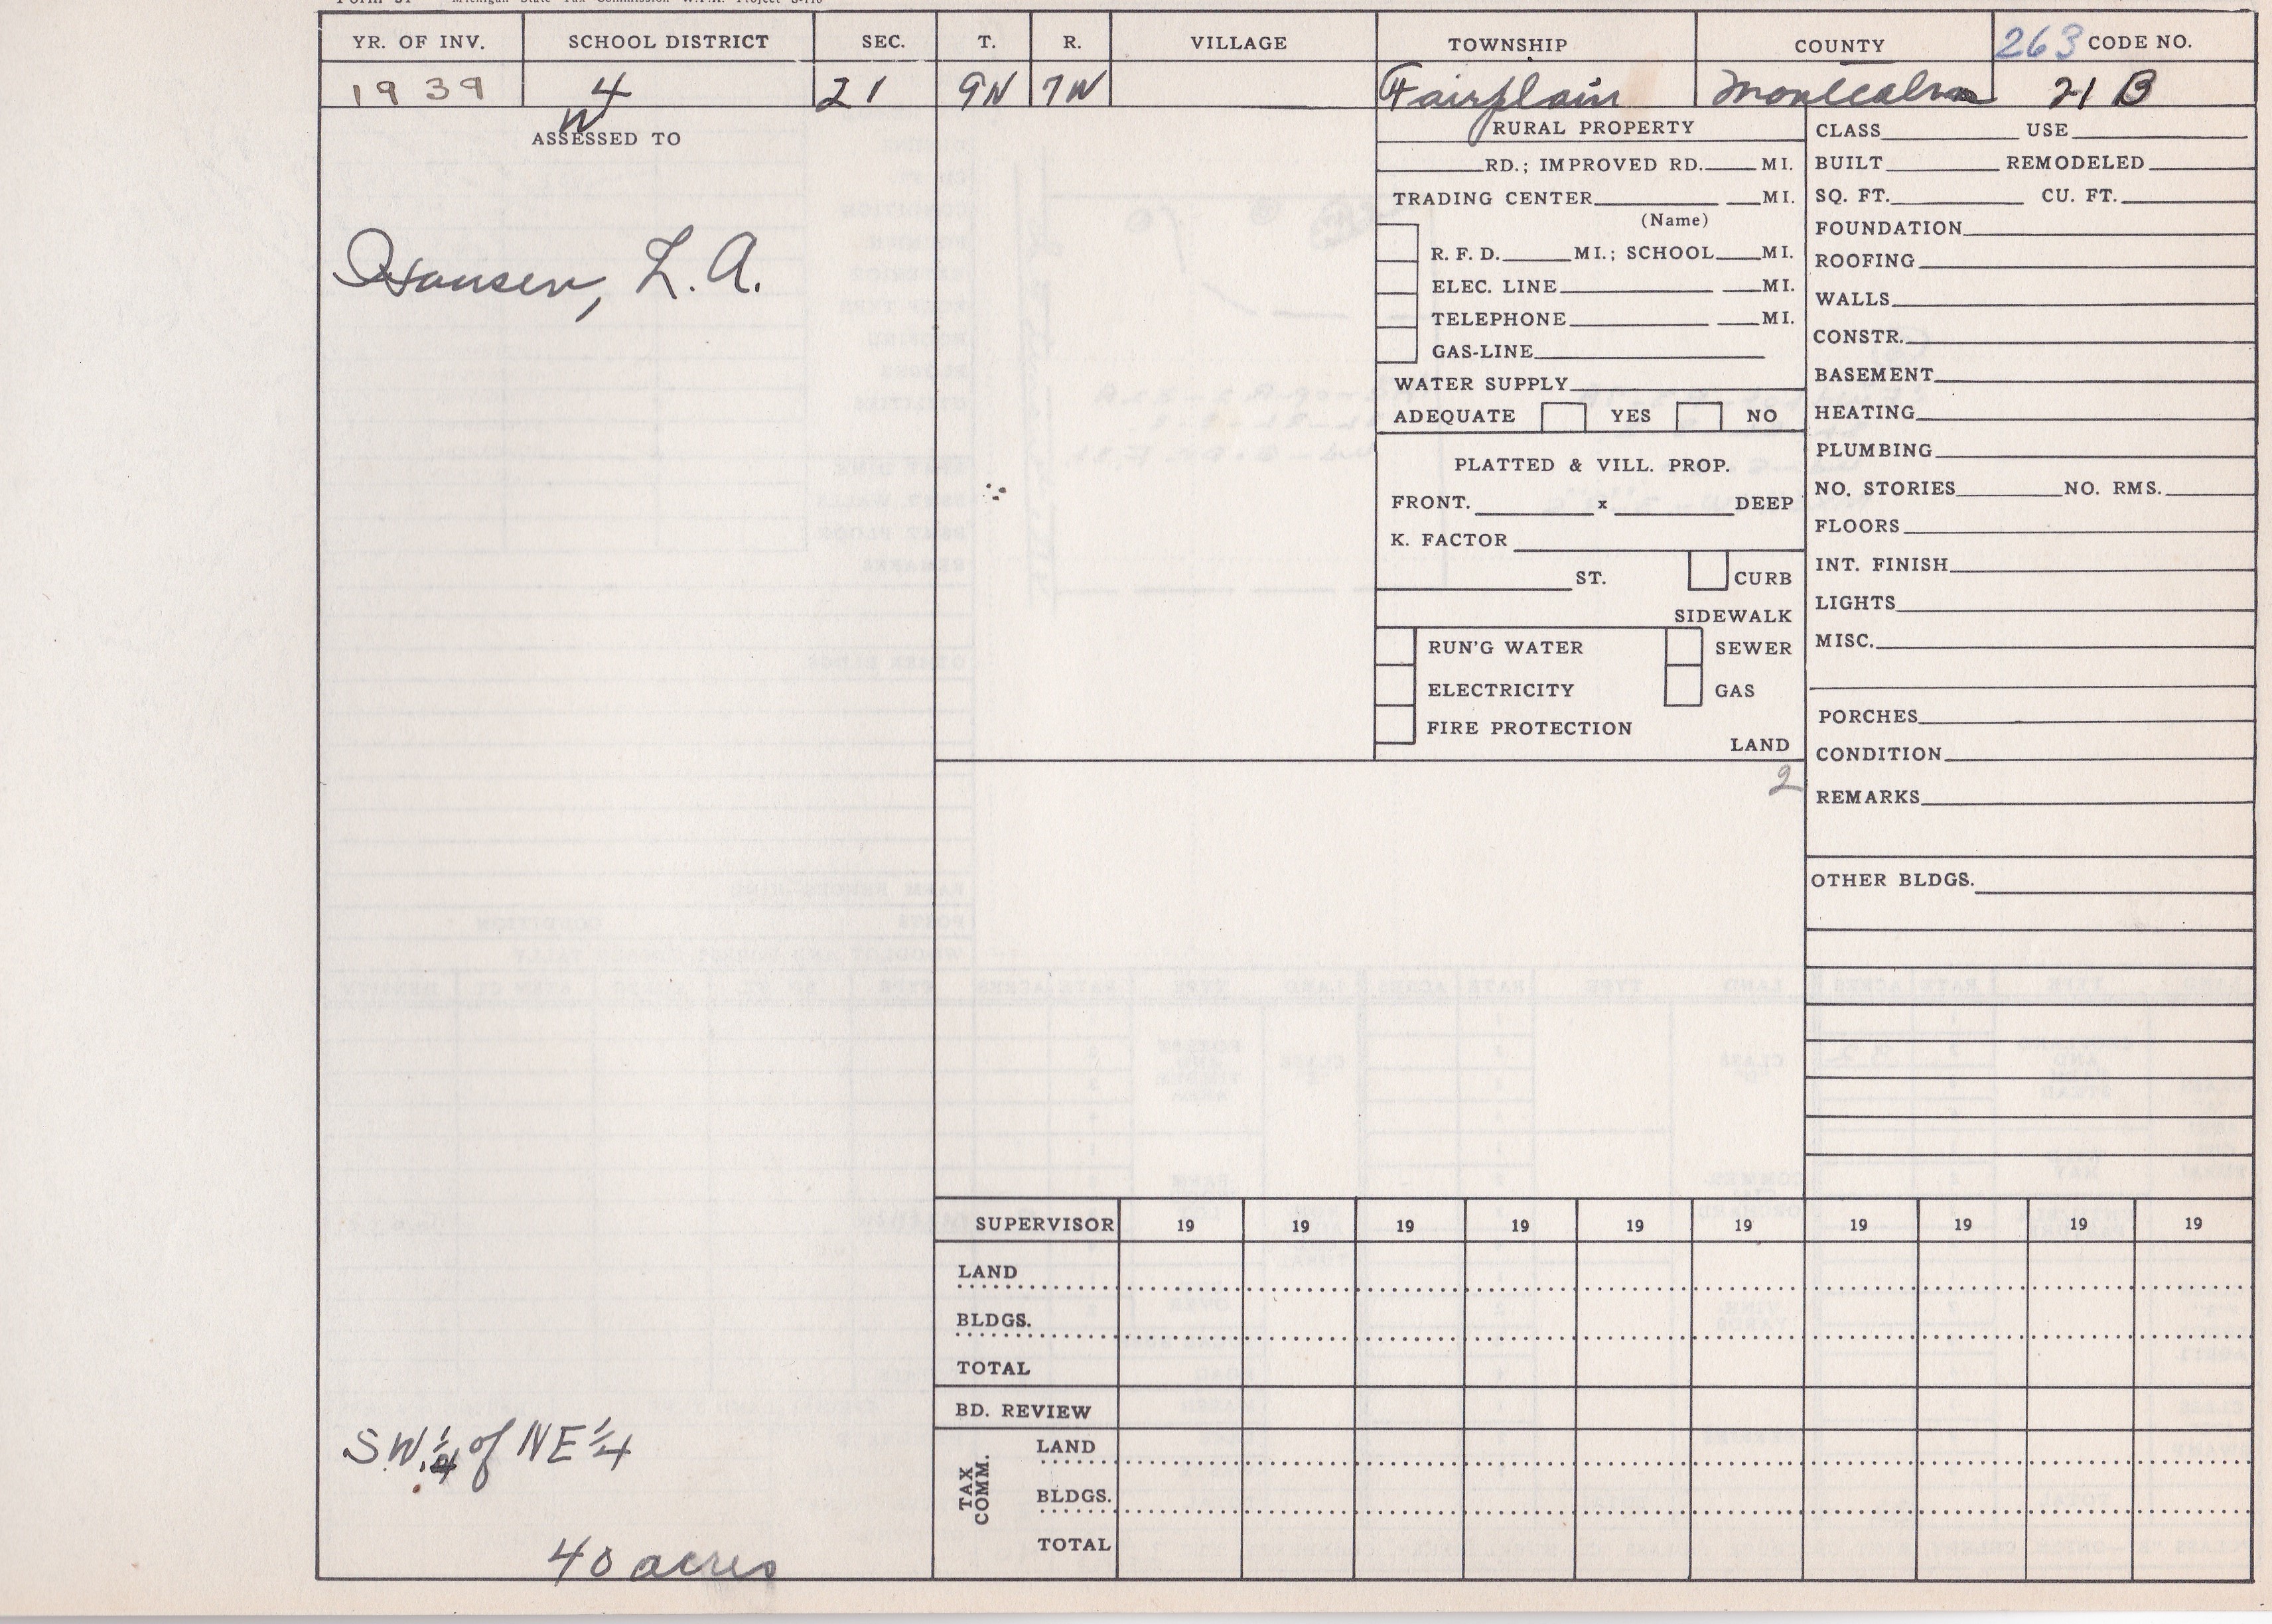 Form 31 Michigan State Tax Commission W.P.A. Project
YR. OF INV. SCHOOL DISTRICT SEC. T. R. VILLAGE TOWNSHIP COUNTY 263 CODE NO.
1939 4 21 9N 7W Fairplain Montcalm 21 B
W
ASSESSED TO
Hansen, L. A.
SW. 1/4 of NE 1/4
40 acres
RURAL PROPERTY
RD.; IMPROVED RD. MI.
TRADING CENTER MI.
(Name)
R. F. D. MI.; SCHOOL MI.
ELEC. LINE MI.
TELEPHONE MI.
GAS-LINE
WATER SUPPLY
ADEQUATE YES NO
PLATTED & VILL. PROP.
FRONT. x DEEP
K. FACTOR
ST. CURB
SIDEWALK
RUN'G WATER SEWER
ELECTRICITY GAS
FIRE PROTECTION
LAND
2
CLASS USE
BUILT REMODELED
SQ. FT. CU. FT.
FOUNDATION
ROOFING
WALLS
CONSTR.
BASEMENT
HEATING
PLUMBING
NO. STORIES NO. RMS.
FLOORS
INT. FINISH
LIGHTS
MISC.
PORCHES
CONDITION
REMARKS
OTHER BLDGS.
SUPERVISOR 19 19 19 19 19 19 19 19 19 19
LAND
BLDGS.
TOTAL
BD. REVIEW
TAX COMM.
LAND
BLDGS.
TOTAL